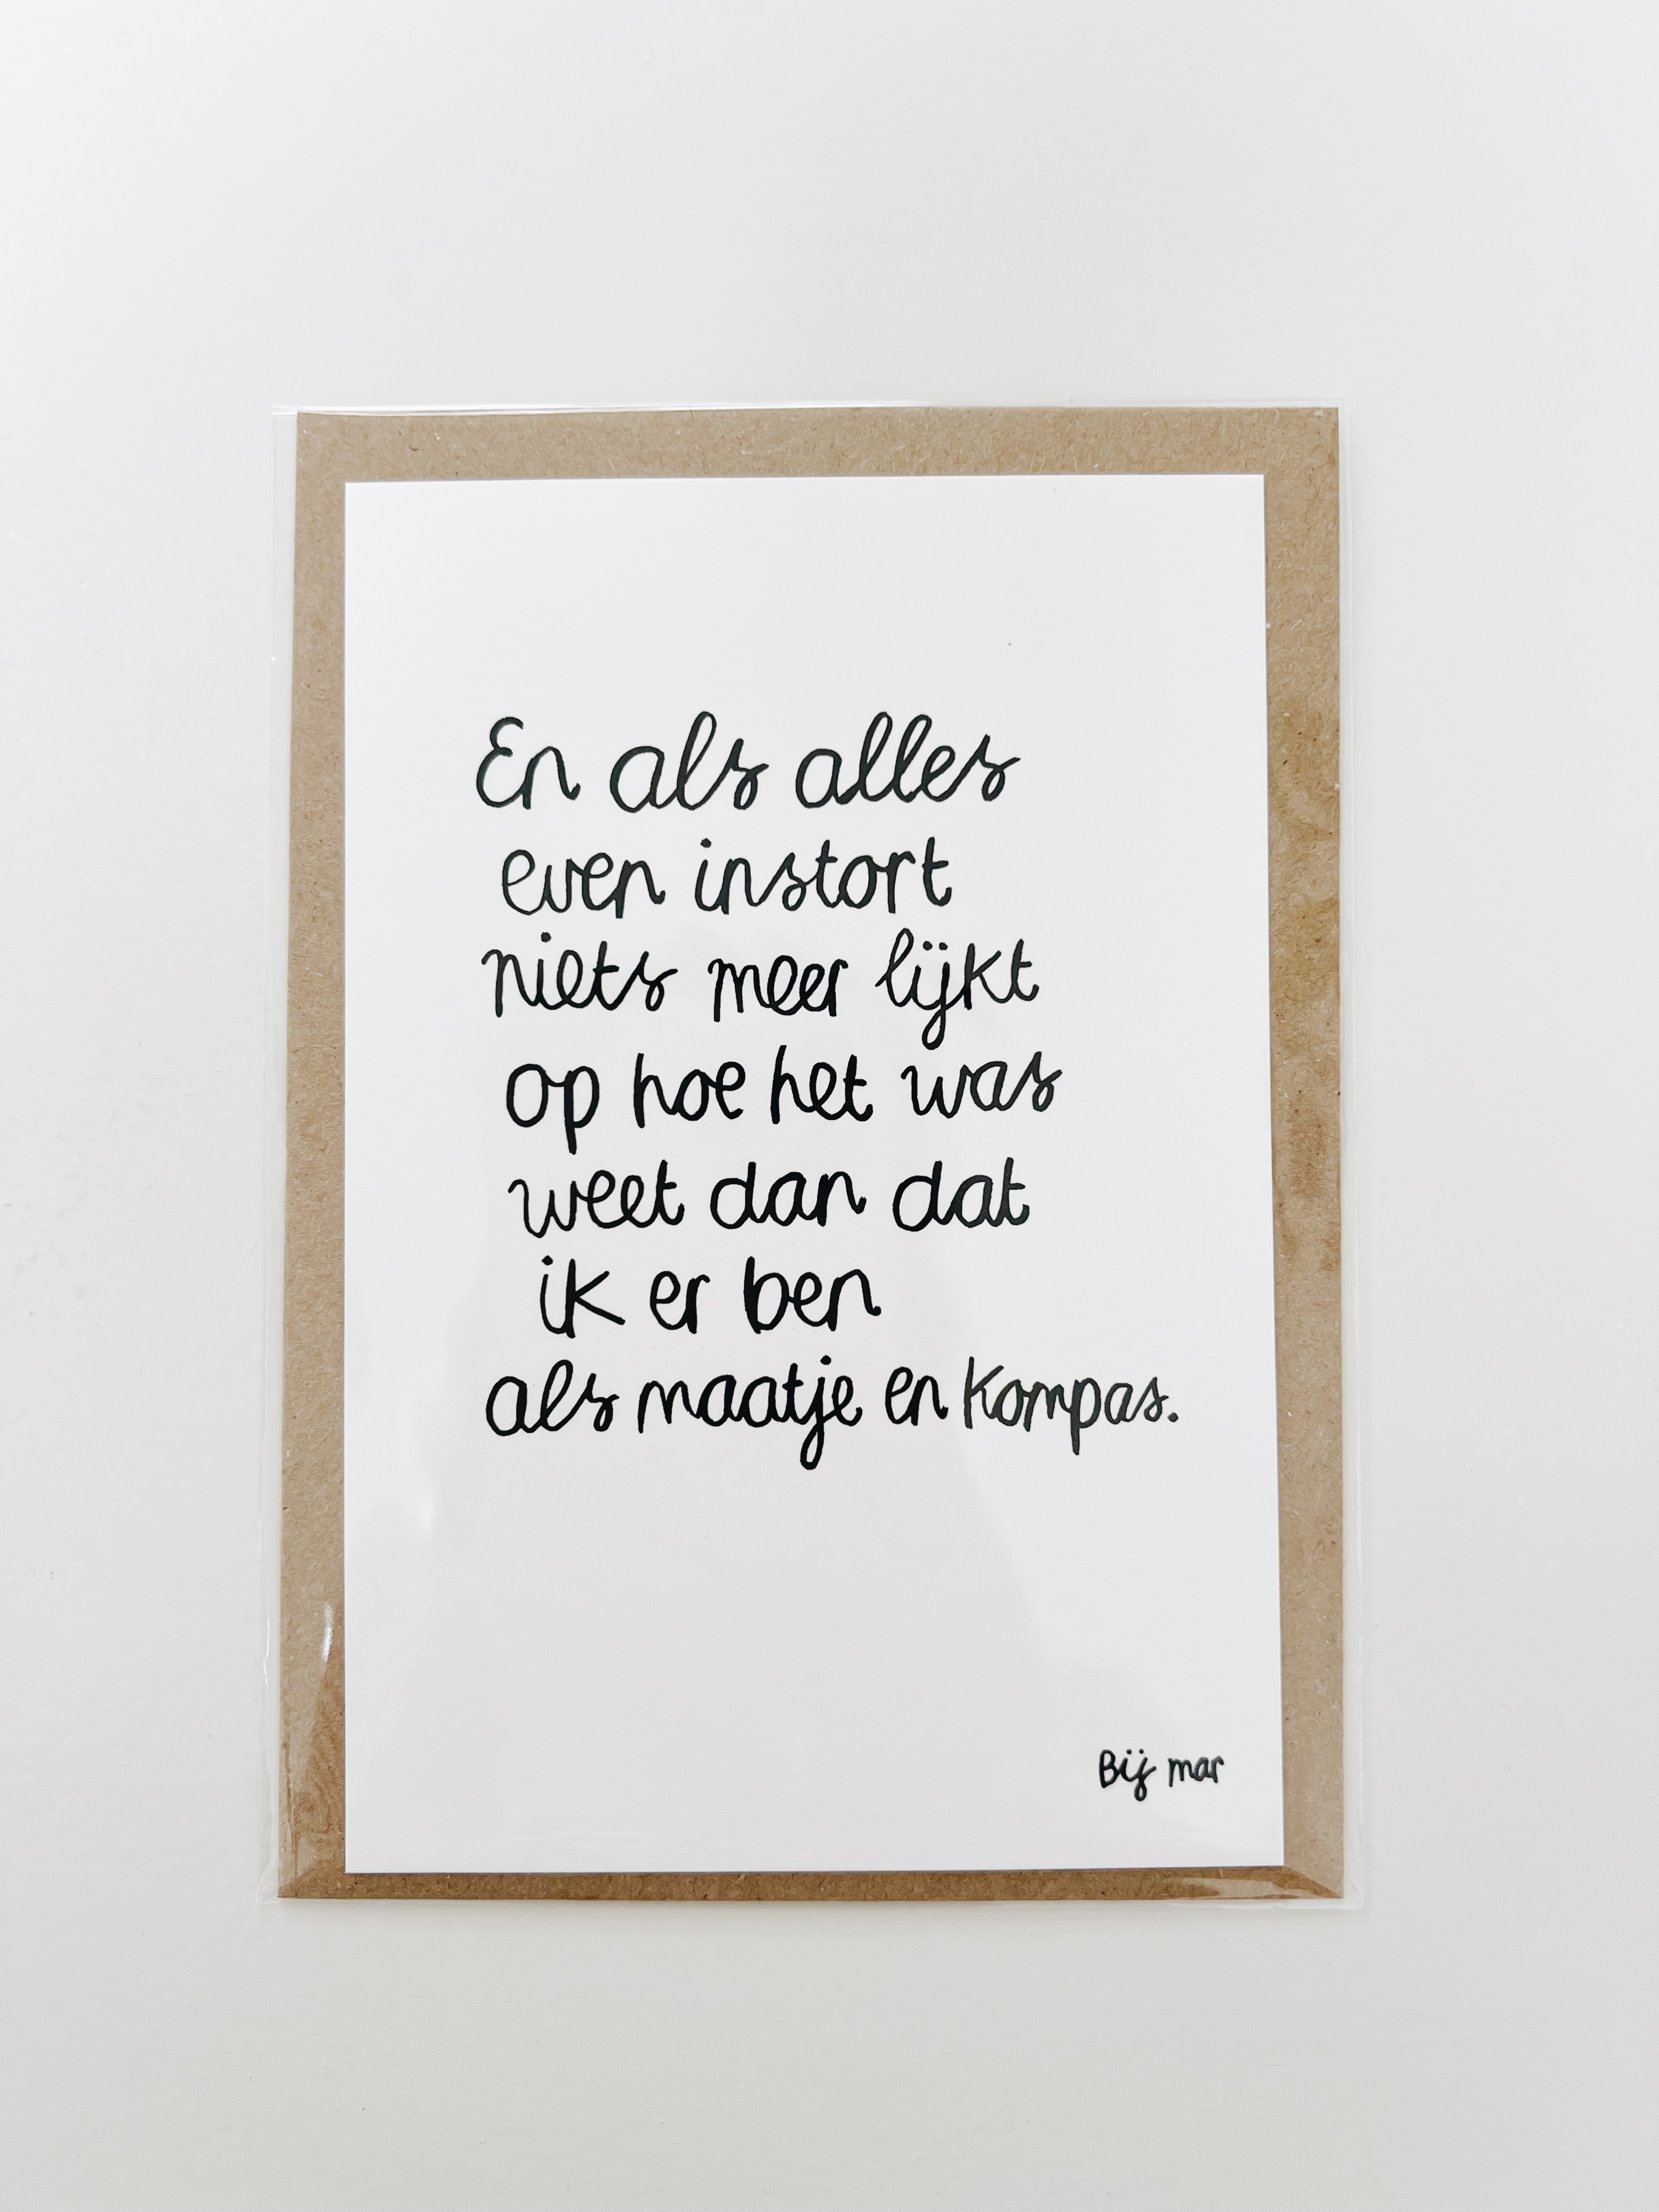 En als alles
even instort
niets meer lijkt
op hoe het was
weet dan dat
ik er ben
als maatje en kompas.
Bij mar